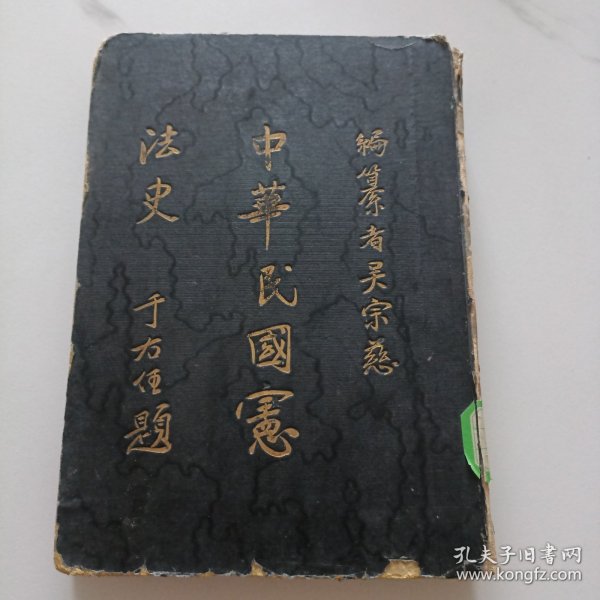 編纂者吴宗慈
中華民國憲
法史
于右任題
孔夫子旧书网
www.kongfz.com